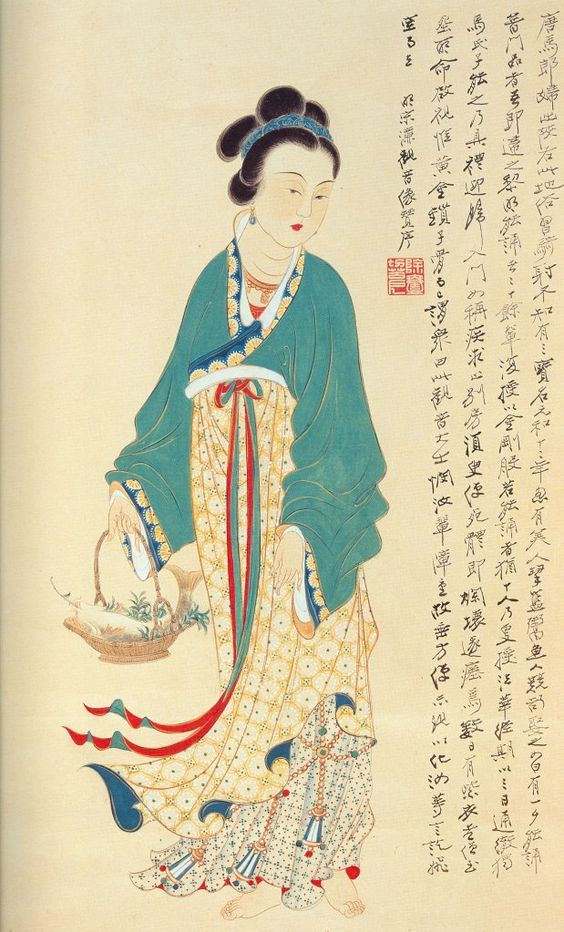 唐馬郎婦出陝右此地俗習騎射不知有三寶名元和十二年忽有美人挈籃鬻魚人競欲娶之曰有一夕能誦
普門品者吾即適之黎明能誦者二十餘輩復授以金剛般若能誦者猶十人乃更授法華經期以三日通徹獨
馬氏子能之乃具禮迎歸入門女稱疾求止別房須臾便死體即爛壞遽瘞焉數日有紫衣老僧至
葬所命啟視惟黃金鎖子骨而已謂眾曰此觀音大士憫汝輩障重故垂方便示現以化汝等言訖飛
空而去 明宋濂觀音像贊序